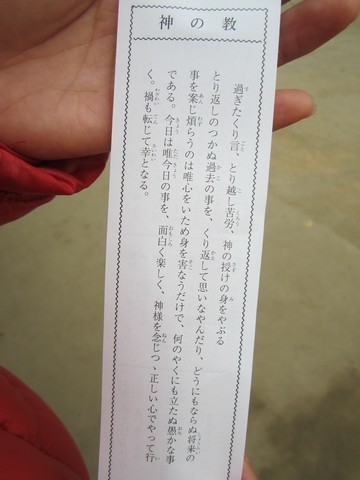 神の教
過ぎたくり言　とり越し苦労、神の授けの身をやぶる
とり返しのつかぬ過去の事を、くり返して思いなやんだり、どうにもならぬ将来の
事を案じ煩らうのは唯心をいため身を害なうだけで、何のやくにも立たぬ愚かな事
である。今日は唯今日の事を、面白く楽しく、神様を念じつゝ正しい心でやって行
く。禍も転じて幸となる。